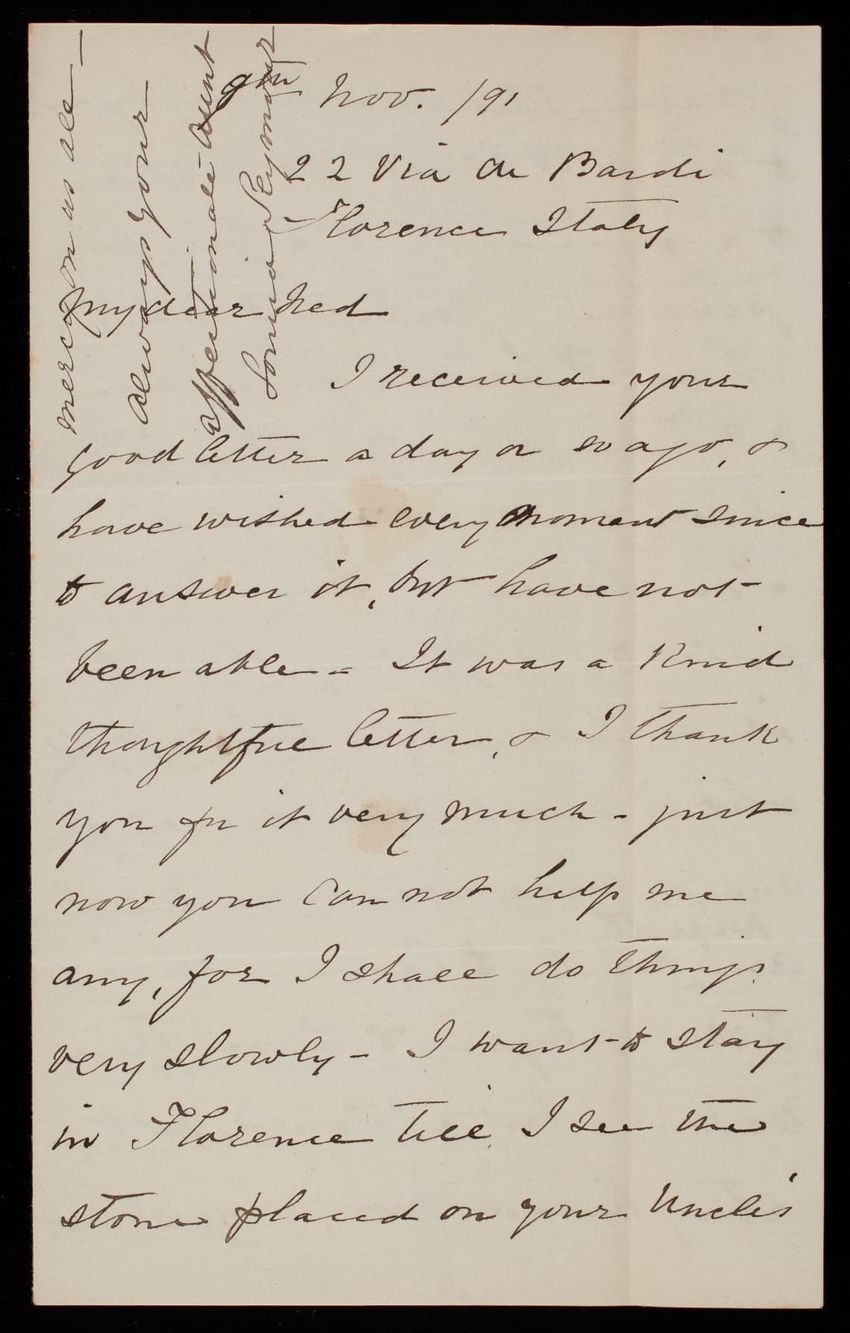 9th Nov. /91
22 Via de Bardi
Florence Italy
My dear Ned
I received your
good letter a day or so ago, &
have wished every moment since
to answer it, but have not
been able - It was a kind
thoughtful letter, & I thank
you for it very much - just
now you can not help me
any, for I shall do things
very slowly - I want to stay
in Florence till I see the
stone placed on your Uncle's
mercy on us all -
Always your
affectionate Aunt
Louisa Seymour